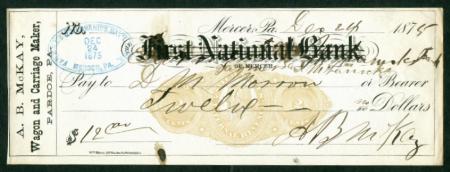 A. B. McKAY,
Wagon and Carriage Maker,
PARDOE, PA.
No.
Mercer, Pa. Dec 24 1875
DEC
24
1875
MERCER, PA.
First National Bank
OF MERCER
Pay to D. M. Morrow or Bearer
Twelve no/100 Dollars
$12 00/100 A B McKay